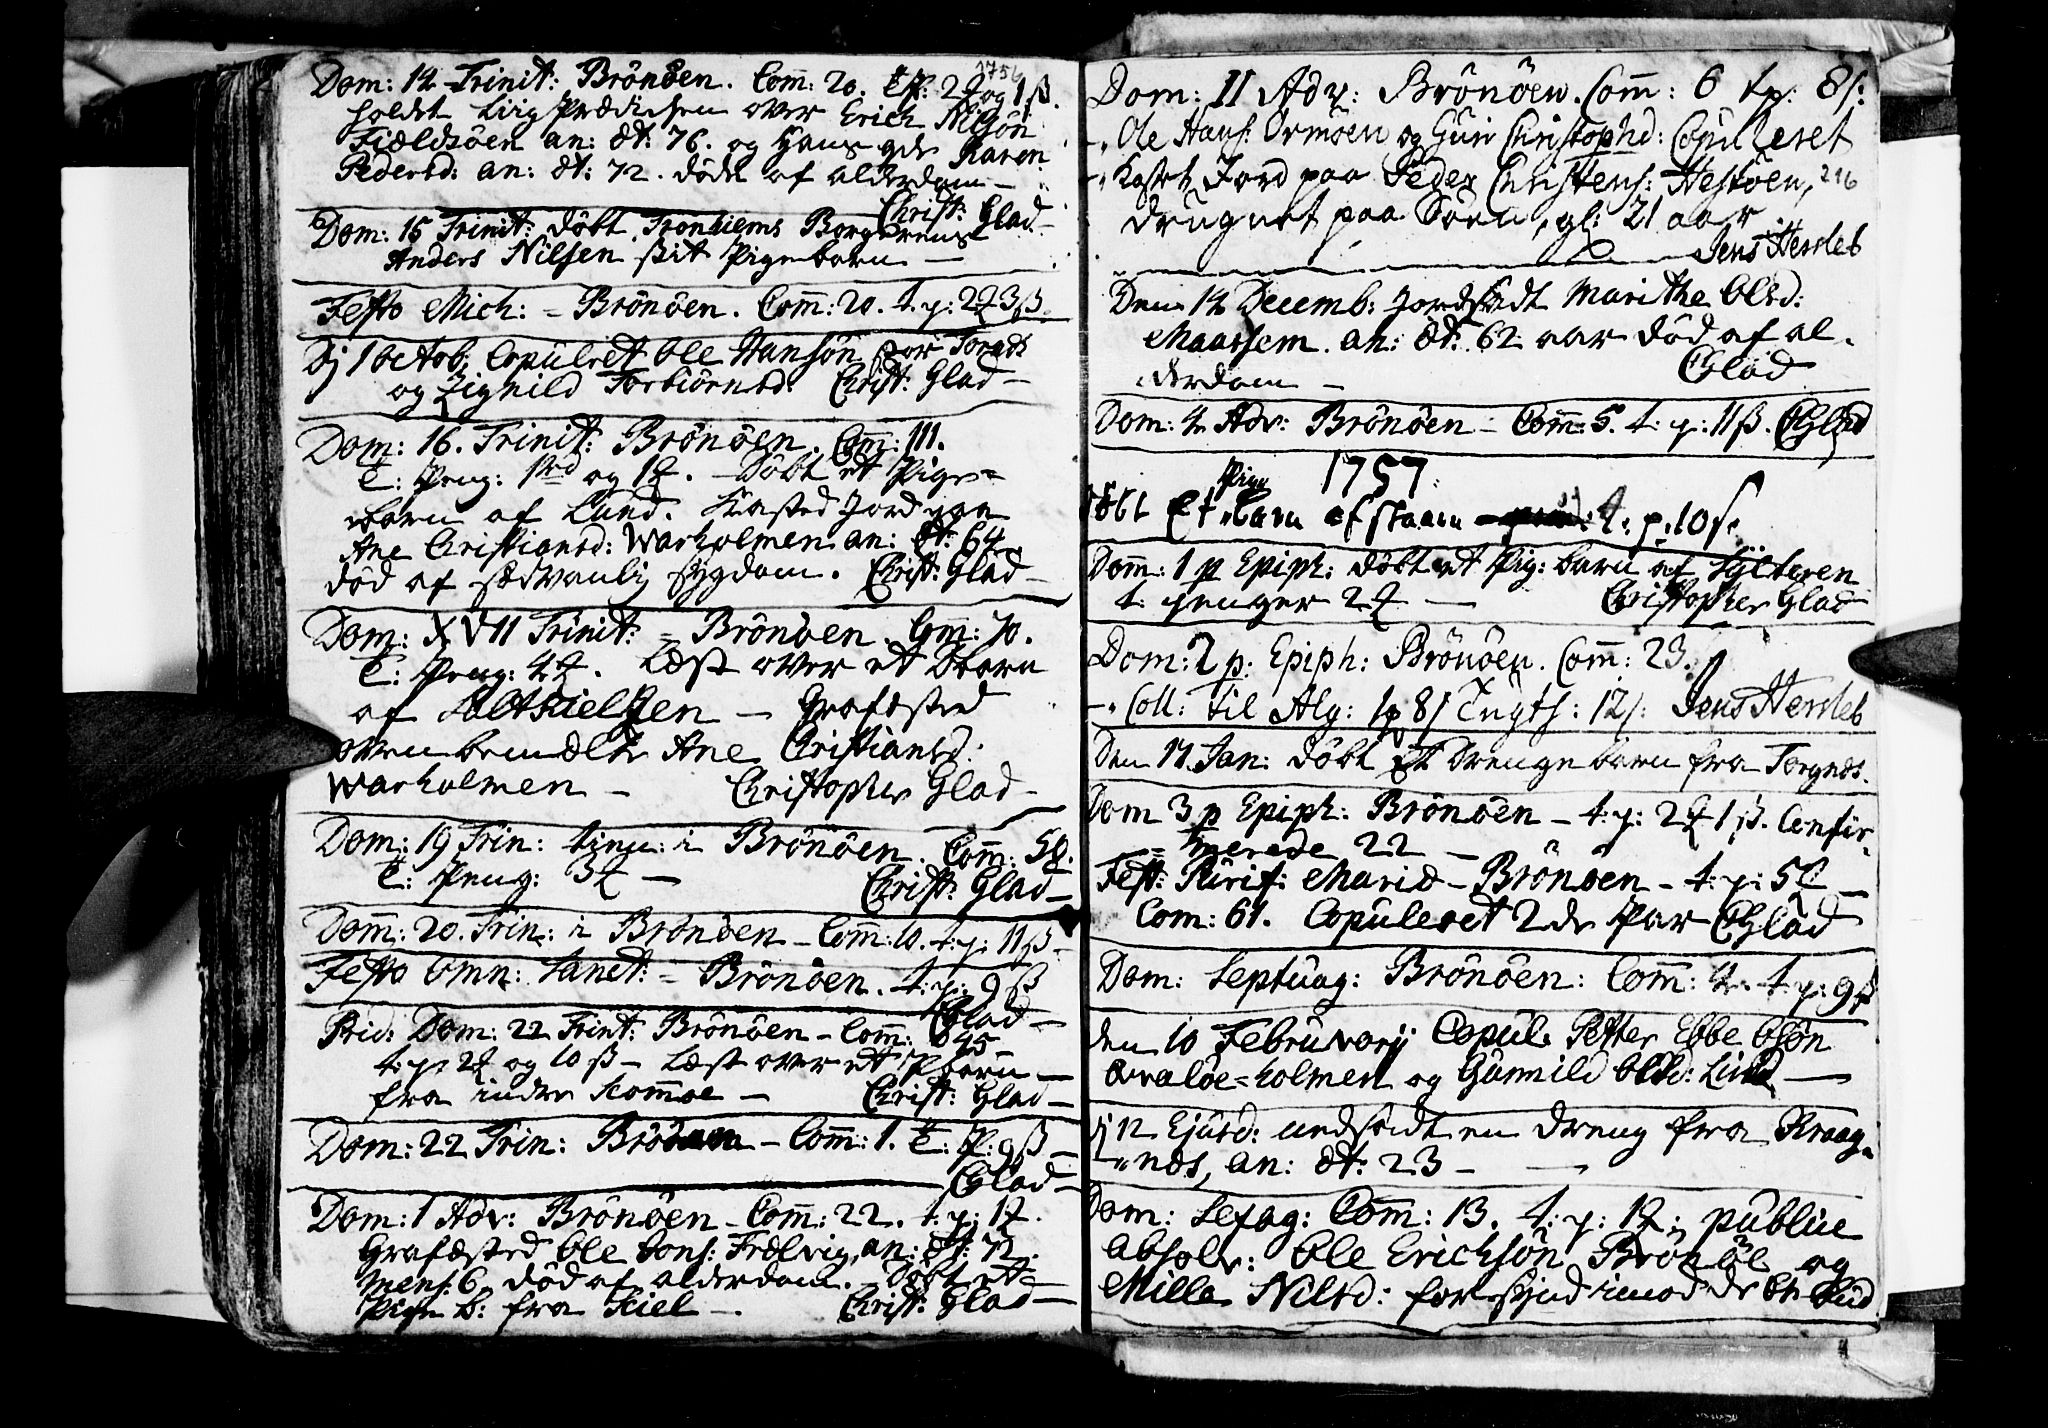 1756
Dom: 14 Trinit: Brönöen. Com: 20. T.P: 2 og 1 ß.
holdet Liig Prædichen over Erich Nilsön
Fieldsöen an: æt: 76. og Hans gde Karen
Pedersd: an: æt: 72. döde af alderdom —
Christ: Glad —
Dom: 15 Trinit: döbt Tronhiems Borgerens
Anders Nilsen sit Pigebarn —
Festo Mich: = Brönöen. Com: 20. t. p: 2 3 ß.
Dj 1 Octob: Copulret Ole Hansön Torgnes
og Zignild Torbiörnsd. Christ: Glad —
Dom: 16. Trinit: Brönöen. Com: 111.
T: Peng: 1 rd og 1. — Döbt et Pige=
barn af Lund. Kasted Jord paa
Ane Cristiansd: Warholmen an: æt: 64
död af sædvanlig sygdom. Christ: Glad —
Dom: XVII Trinit: = Brönöen. Com: 70.
T: Peng: 4. Læst over et Dbarn
af Saltkielsen — Grafæsted
ovenbemælte Ane Cristiansd:
Warholmen — Christopher Glad —
Dom: 19 Trin: tien: i Brönöen. Com: 58.
T: Peng: 3 — Christ: Glad —
Dom: 20. Trin: i Brönöen — Com: 10. t: p: 11 ß —
Festo Omn: Sanct: = Brönöen. t: p: 9 ß
CGlad —
Prid: Dom: 22 Trinit: Brönöen — Com: 45 —
t. p. 2 og 10 ß — Læst over et Pbarn —
fra indre Komoe — Christ: Glad —
Dom: 22 Trin: Brönöen — Com: 1. T: P: 9 ß —
CGlad —
Dom: 1 Adv: Brönöen — Com: 22. t. p: 1.
Grafæsted Ole Jons: Frælvig, an: æt: 72.
Mens: 6. död af alderdom. — Döbt et
Pige b: fra Kiel —. Christ: Glad —
Dom: II Adv: Brönöen. Com: 6 tp: 8 s:
Ole Hans: Ormöen og Guri Christophd: Copuleret
Kastet Jord paa Peder Christens: Hestöen, 216
drugnet paa Söen, gl: 21 aar
Jens Hersleb
Den 14 Decemb: Jordfæst Marithe Olsd:
Maarsem. an: æt: 62 aar död af al-
derdom — CGlad
Dom: 4 Adv: Brönöen — Com: 5. t: p: 11 ß. CGlad
1757.
Pige
döbt Et barn af t. p. 10 s.
Dom: 1 p Epiph: döbt et Pig: barn af Sylteren
t. penger 2 — Christopher Glad
Dom: 2 p. Epiph: Brönöen. Com: 23.
Coll: til Alg: 1 8 s Tugth: 12 s: Jens Hersleb
Den 17 Jan: döbt Et Drengebarn fra Torgnes.
Dom 3 p Epiph: Brönöen — t: p: 2 1 ß. Confir-
= merede 22 —
Fest: Purif: Mariæ — Brönöen — t: p: 5 —
Com: 61. Copuleret 2de Par CGlad
Dom: Septuag: Brönöen: Com: 4. t. p: 9 ß
den 10 Februarij Copul: Petter Ebbe Olsön
Qvaløe=holmen og Gunnild Olsd: Lund —
dj 12 Ejusd: nedsadt en Dreng fra Kraag-
næs, an: æt: 23 — —
Dom: Sexag: Com: 13. t: p: 1; publice
absolv: Ole Erichsön Brönöe og
Mille Nilsd: for synd imod de 6te Bud